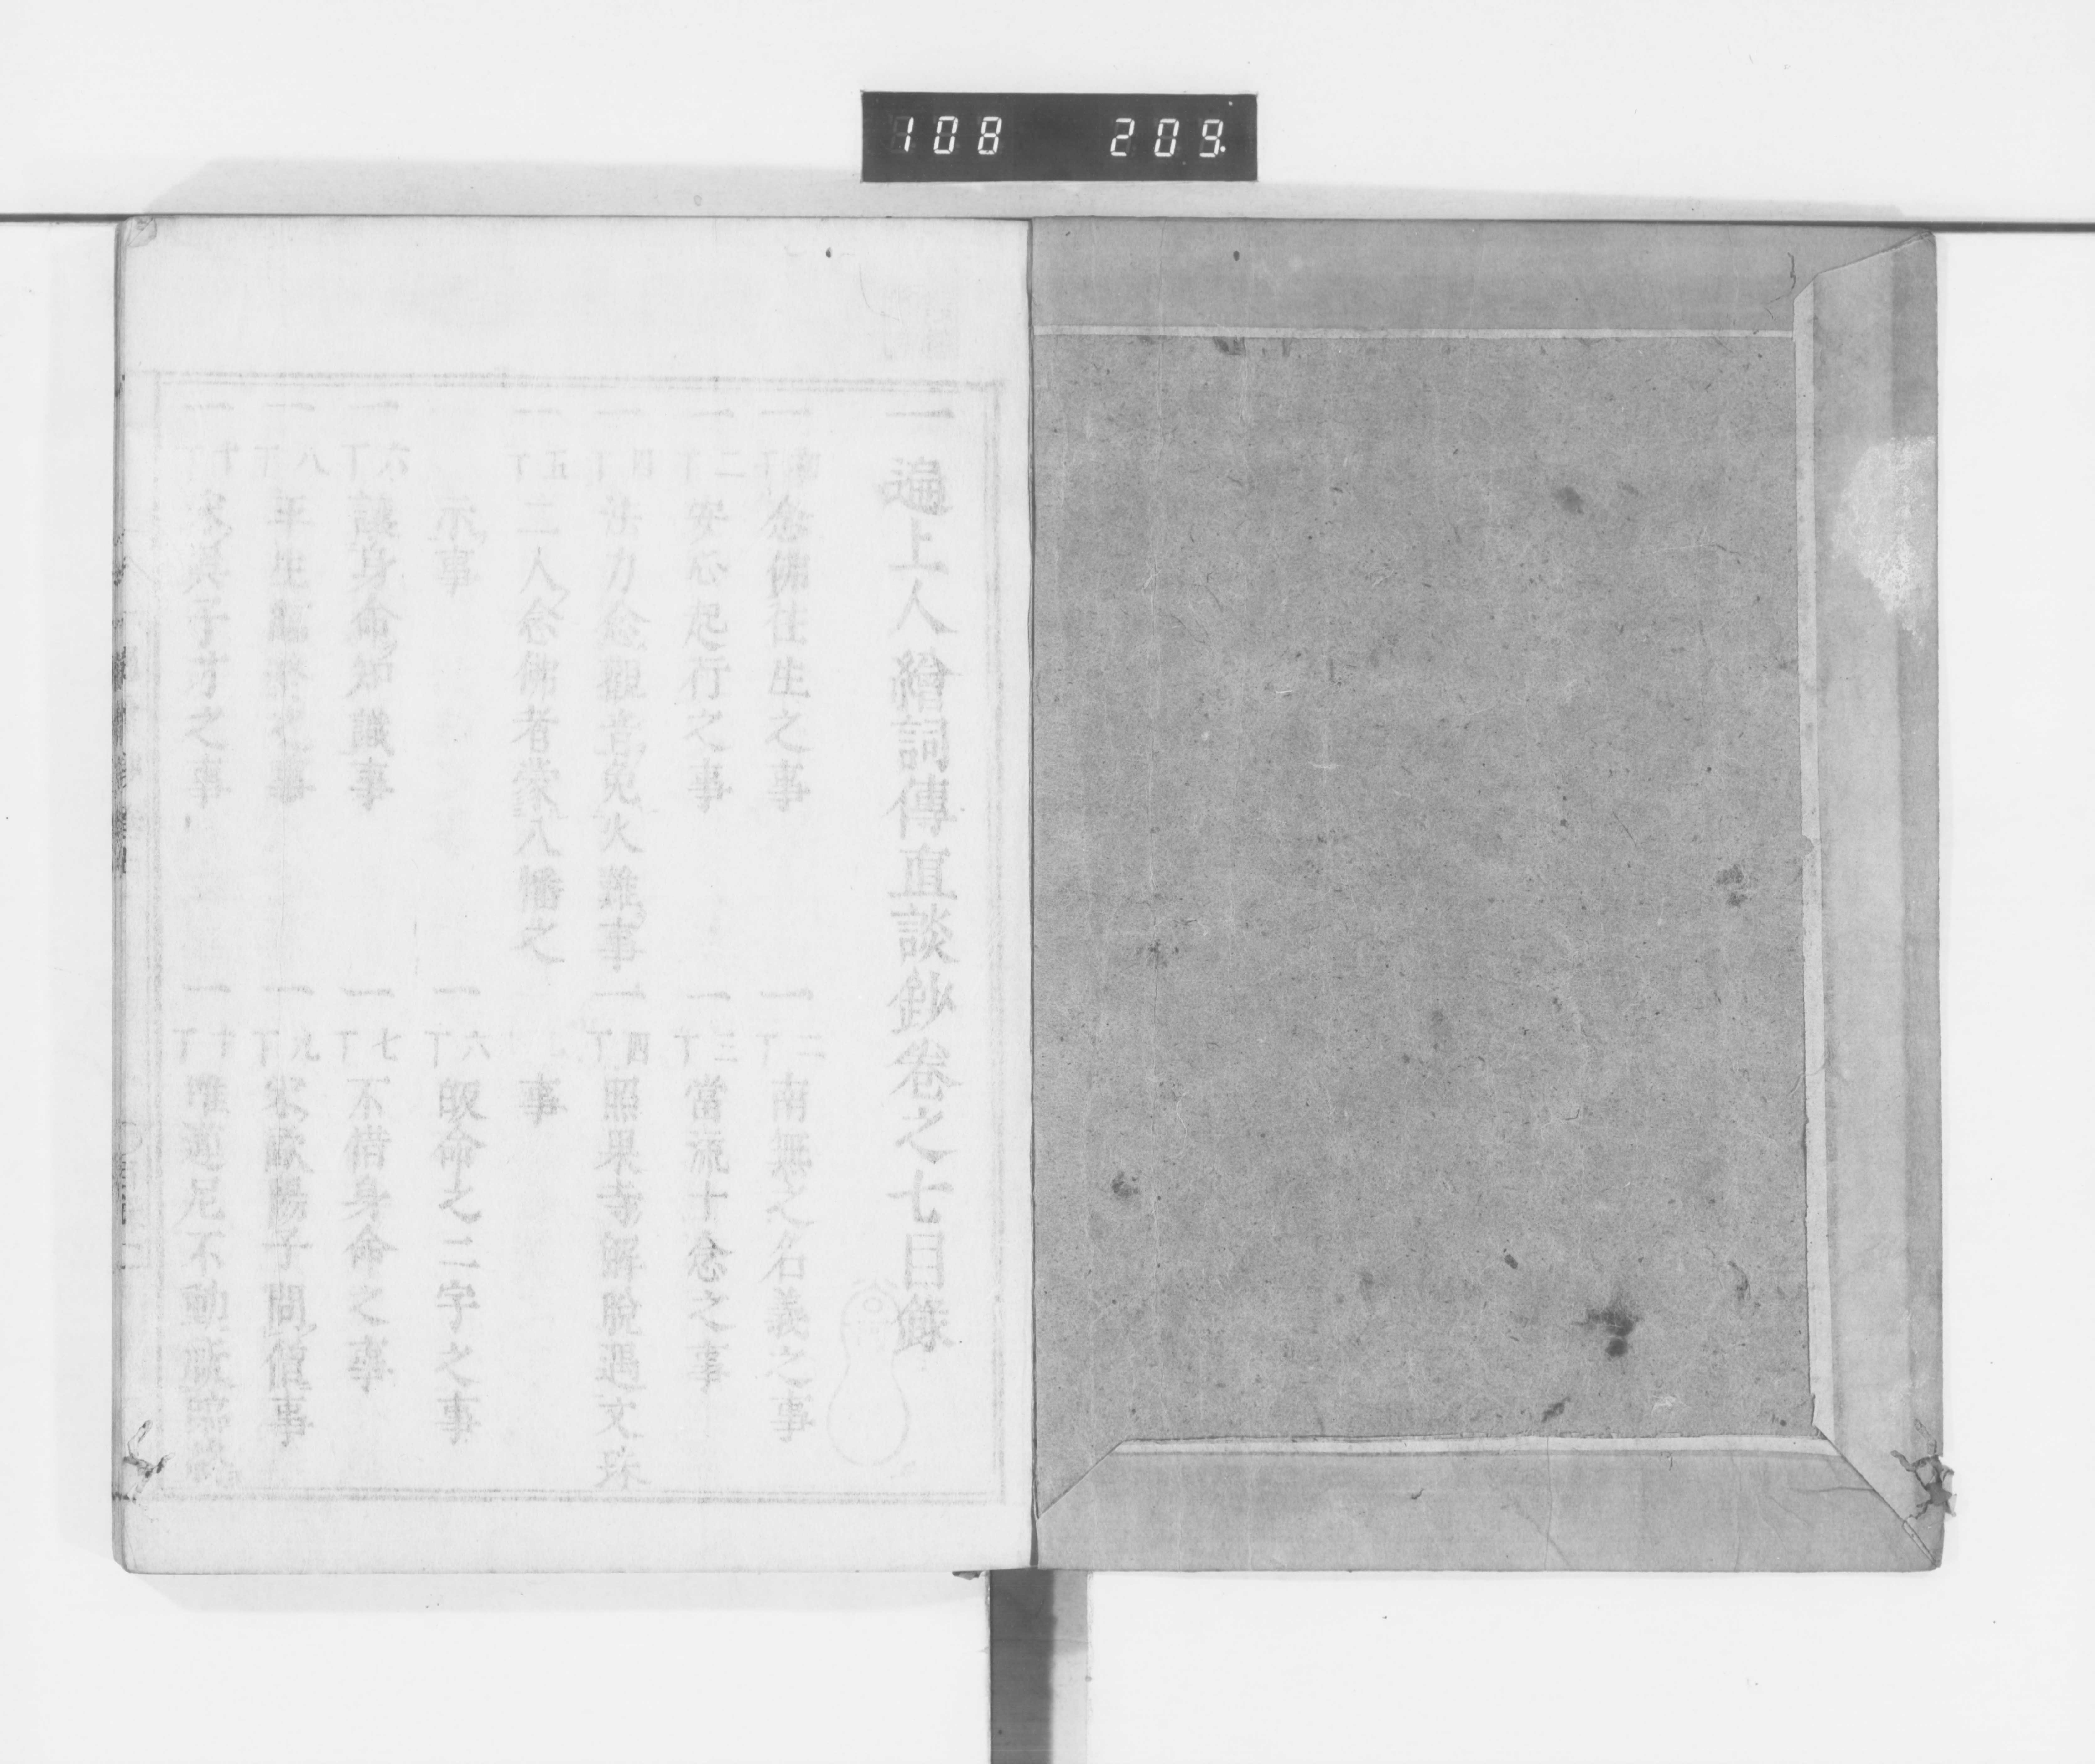 108 209
一遍上人繪詞傳直談鈔卷之七目録
一 初丁 念佛往生之事 一 二丁 南無之名義之事
一 二丁 安心起行之事 一 三丁 當流十念之事
一 四丁 法力念觀音免火難事 一 四丁 照果寺解脱遇文珠
事
一 五丁 二人念佛者蒙八幡之
示事 一 六丁 皈命之二字之事
一 六丁 讓身命知識事 一 七丁 不惜身命之事
一 八丁 平生臨終之事 一 九丁 宋歐陽子問僧事
一 十丁 子才之事 一 十丁 蓮尼不動